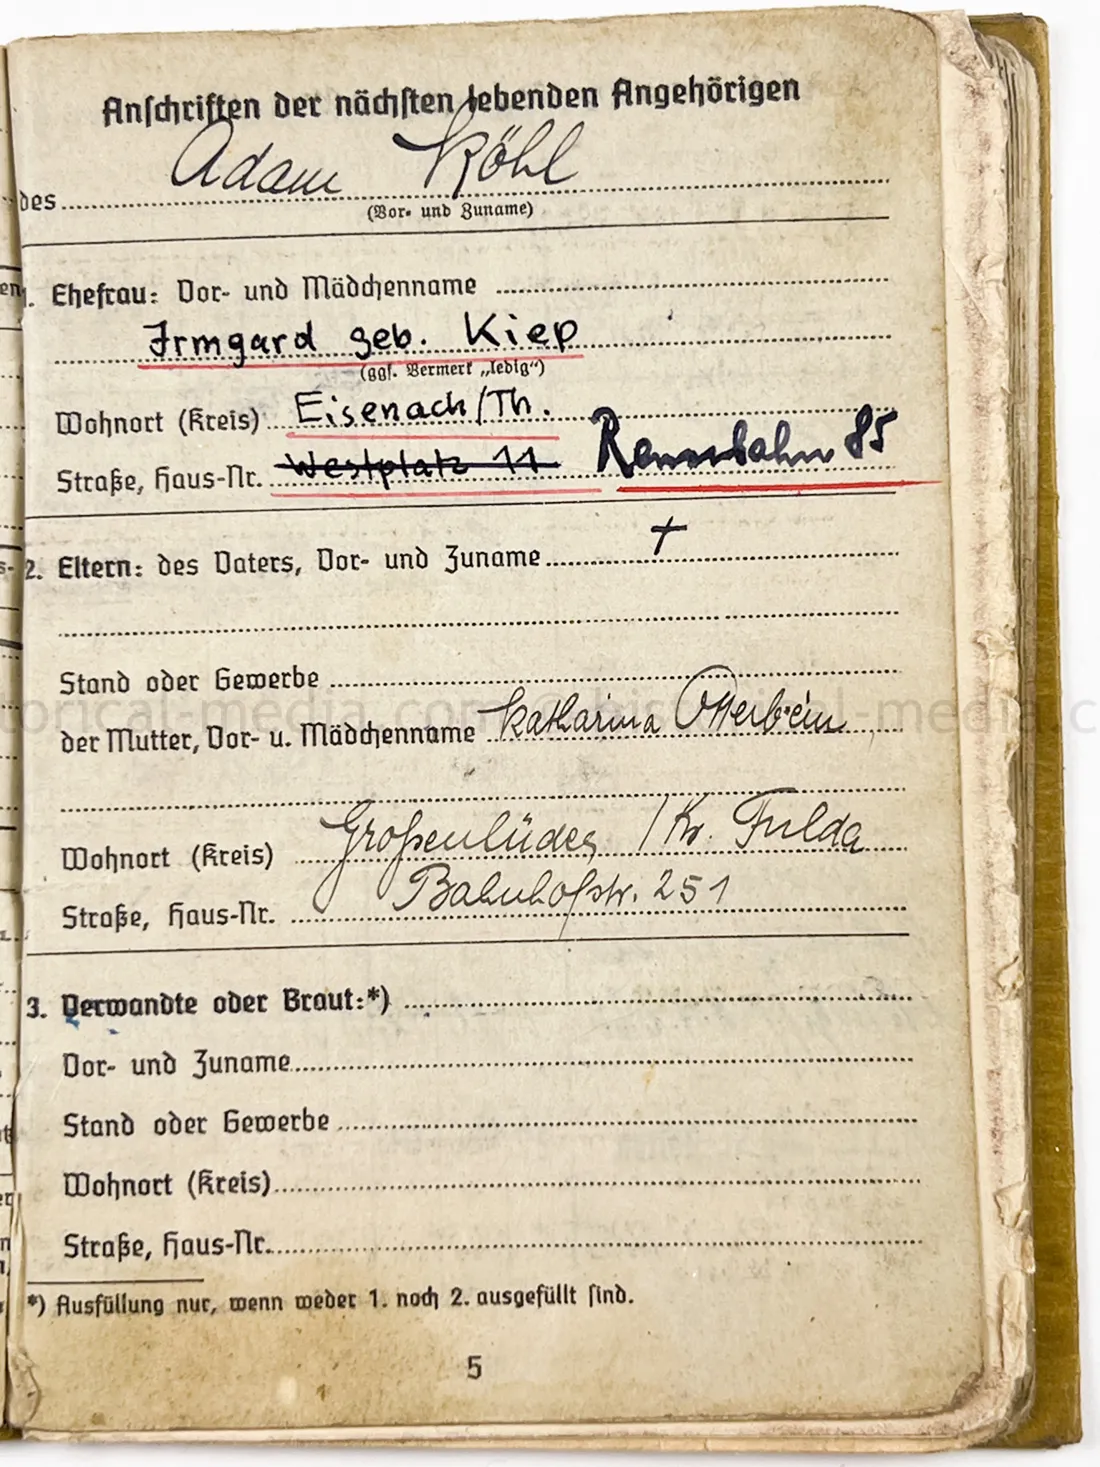 Anschriften der nächsten lebenden Angehörigen
des Adam Köhl
(Vor- und Zuname)
1. Ehefrau: Vor- und Mädchenname
Irmgard geb. Kiep
(ggf. Vermerk „ledig“)
Wohnort (Kreis) Eisenach/Th.
Straße, Haus-Nr. Westplatz 11 Rennbahn 85
2. Eltern: des Vaters, Vor- und Zuname †
Stand oder Gewerbe
der Mutter, Vor- u. Mädchenname Katharina Otterbein
Wohnort (Kreis) Großenlüder /Kr. Fulda
Straße, Haus-Nr. Bahnhofstr. 251
3. Verwandte oder Braut:*)
Vor- und Zuname
Stand oder Gewerbe
Wohnort (Kreis)
Straße, Haus-Nr.
*) Ausfüllung nur, wenn weder 1. noch 2. ausgefüllt sind.
5